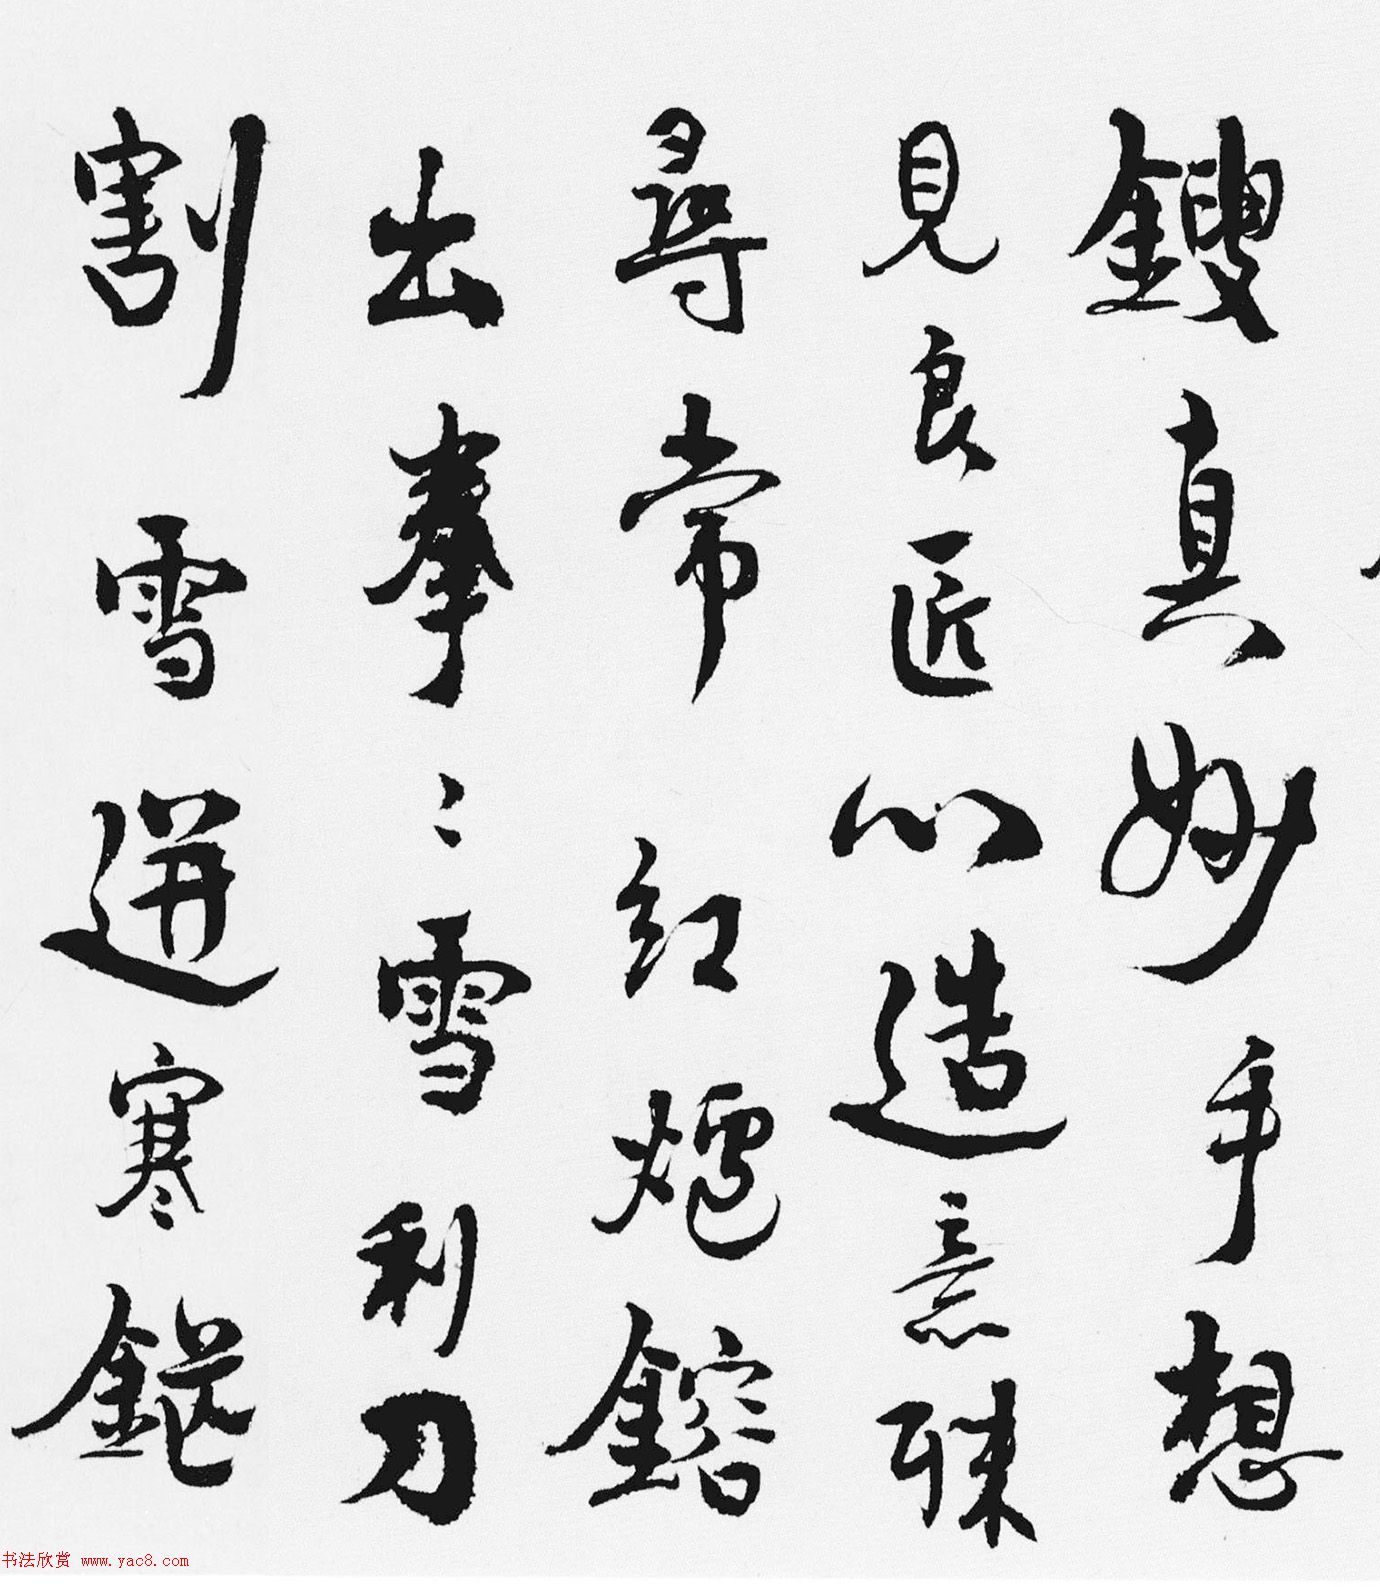 鎪真妙手想
見良匠心造意殊
尋常紅爐鎔
出拳〻雪利刀
割雪迸寒鋩
书法欣赏 www.yac8.com